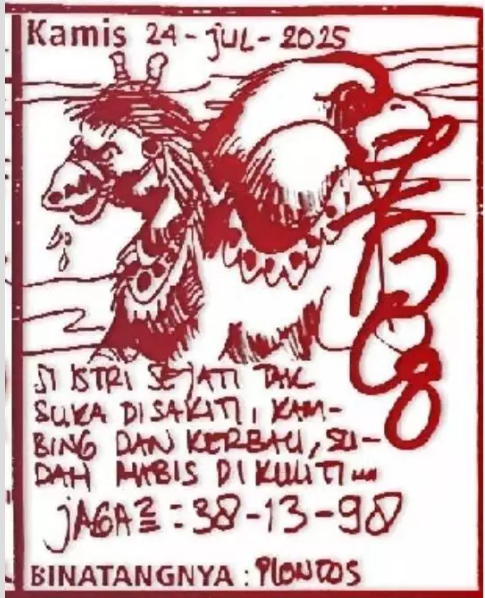 Kamis 24-JUL-2025
SI ISTRI SEJATI TAK
SUKA DISAKITI, KAM-
BING DAN KERBAU, SU-
DAH HABIS DIKULITI...
JAGA2 = 38-13-98
BINATANGNYA : PLONTOS